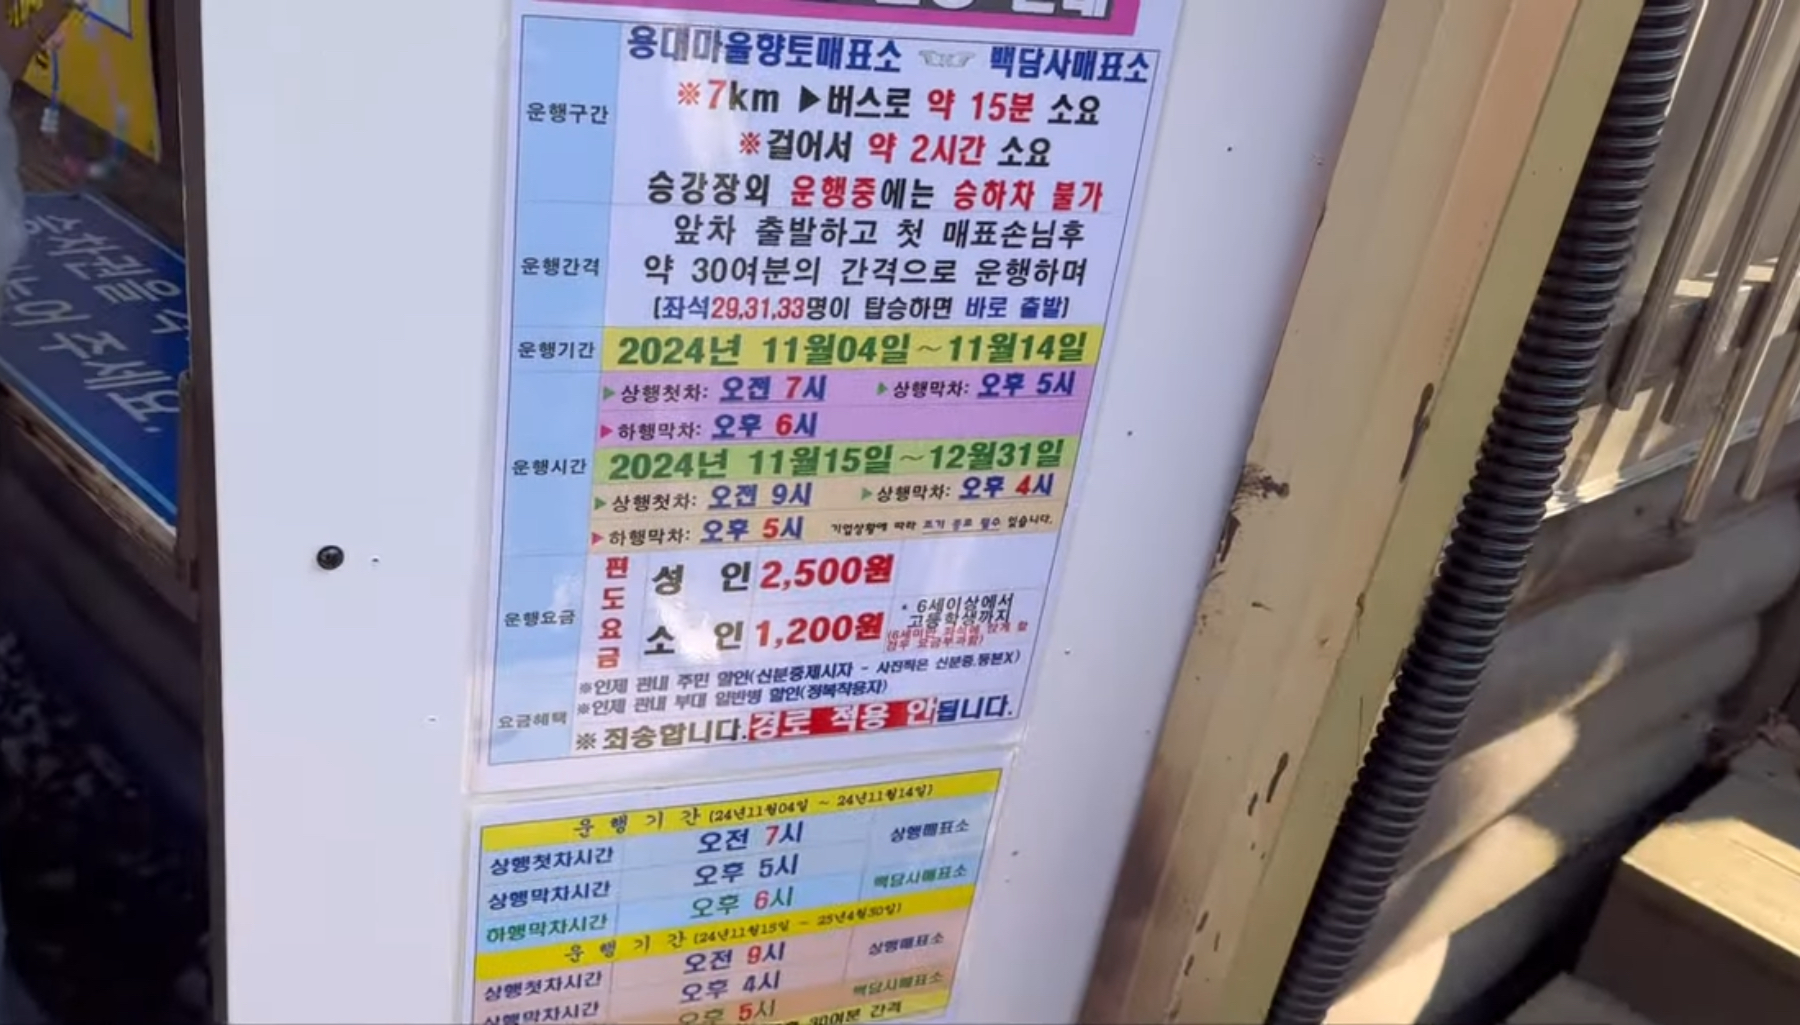 안내
용대마을향토매표소 백담사매표소
운행구간
※7km ▶버스로 약 15분 소요
※걸어서 약 2시간 소요
승강장외 운행중에는 승하차 불가
운행간격
앞차 출발하고 첫 매표손님후
약 30여분의 간격으로 운행하며
(좌석29,31,33명이 탑승하면 바로 출발)
운행기간
2024년 11월04일~11월14일
운행시간
▶상행첫차: 오전 7시 ▶상행막차: 오후 5시
▶하행막차: 오후 6시
2024년 11월15일~12월31일
▶상행첫차: 오전 9시 ▶상행막차: 오후 4시
▶하행막차: 오후 5시 기업상황에 따라 조기 종료 될수 있습니다.
운행요금
편도요금
성 인 2,500원
소 인 1,200원
* 6세이상에서
고등학생까지
(6세미만 좌석에 앉게 할
경우 요금부과함)
요금혜택
※인제 관내 주민 할인(신분증제시자 - 사진찍은 신분증,등본X)
※인제 관내 부대 일반병 할인(정복착용자)
※죄송합니다.경로 적용 안됩니다.
운 행 기 간 (24년11월04일 ~ 24년11월14일)
상행첫차시간 오전 7시 상행매표소
상행막차시간 오후 5시
하행막차시간 오후 6시 백담사매표소
운 행 기 간 (24년11월15일 ~ 25년4월30일)
상행첫차시간 오전 9시 상행매표소
상행막차시간 오후 4시
오후 5시 백담사매표소
30여분 간격